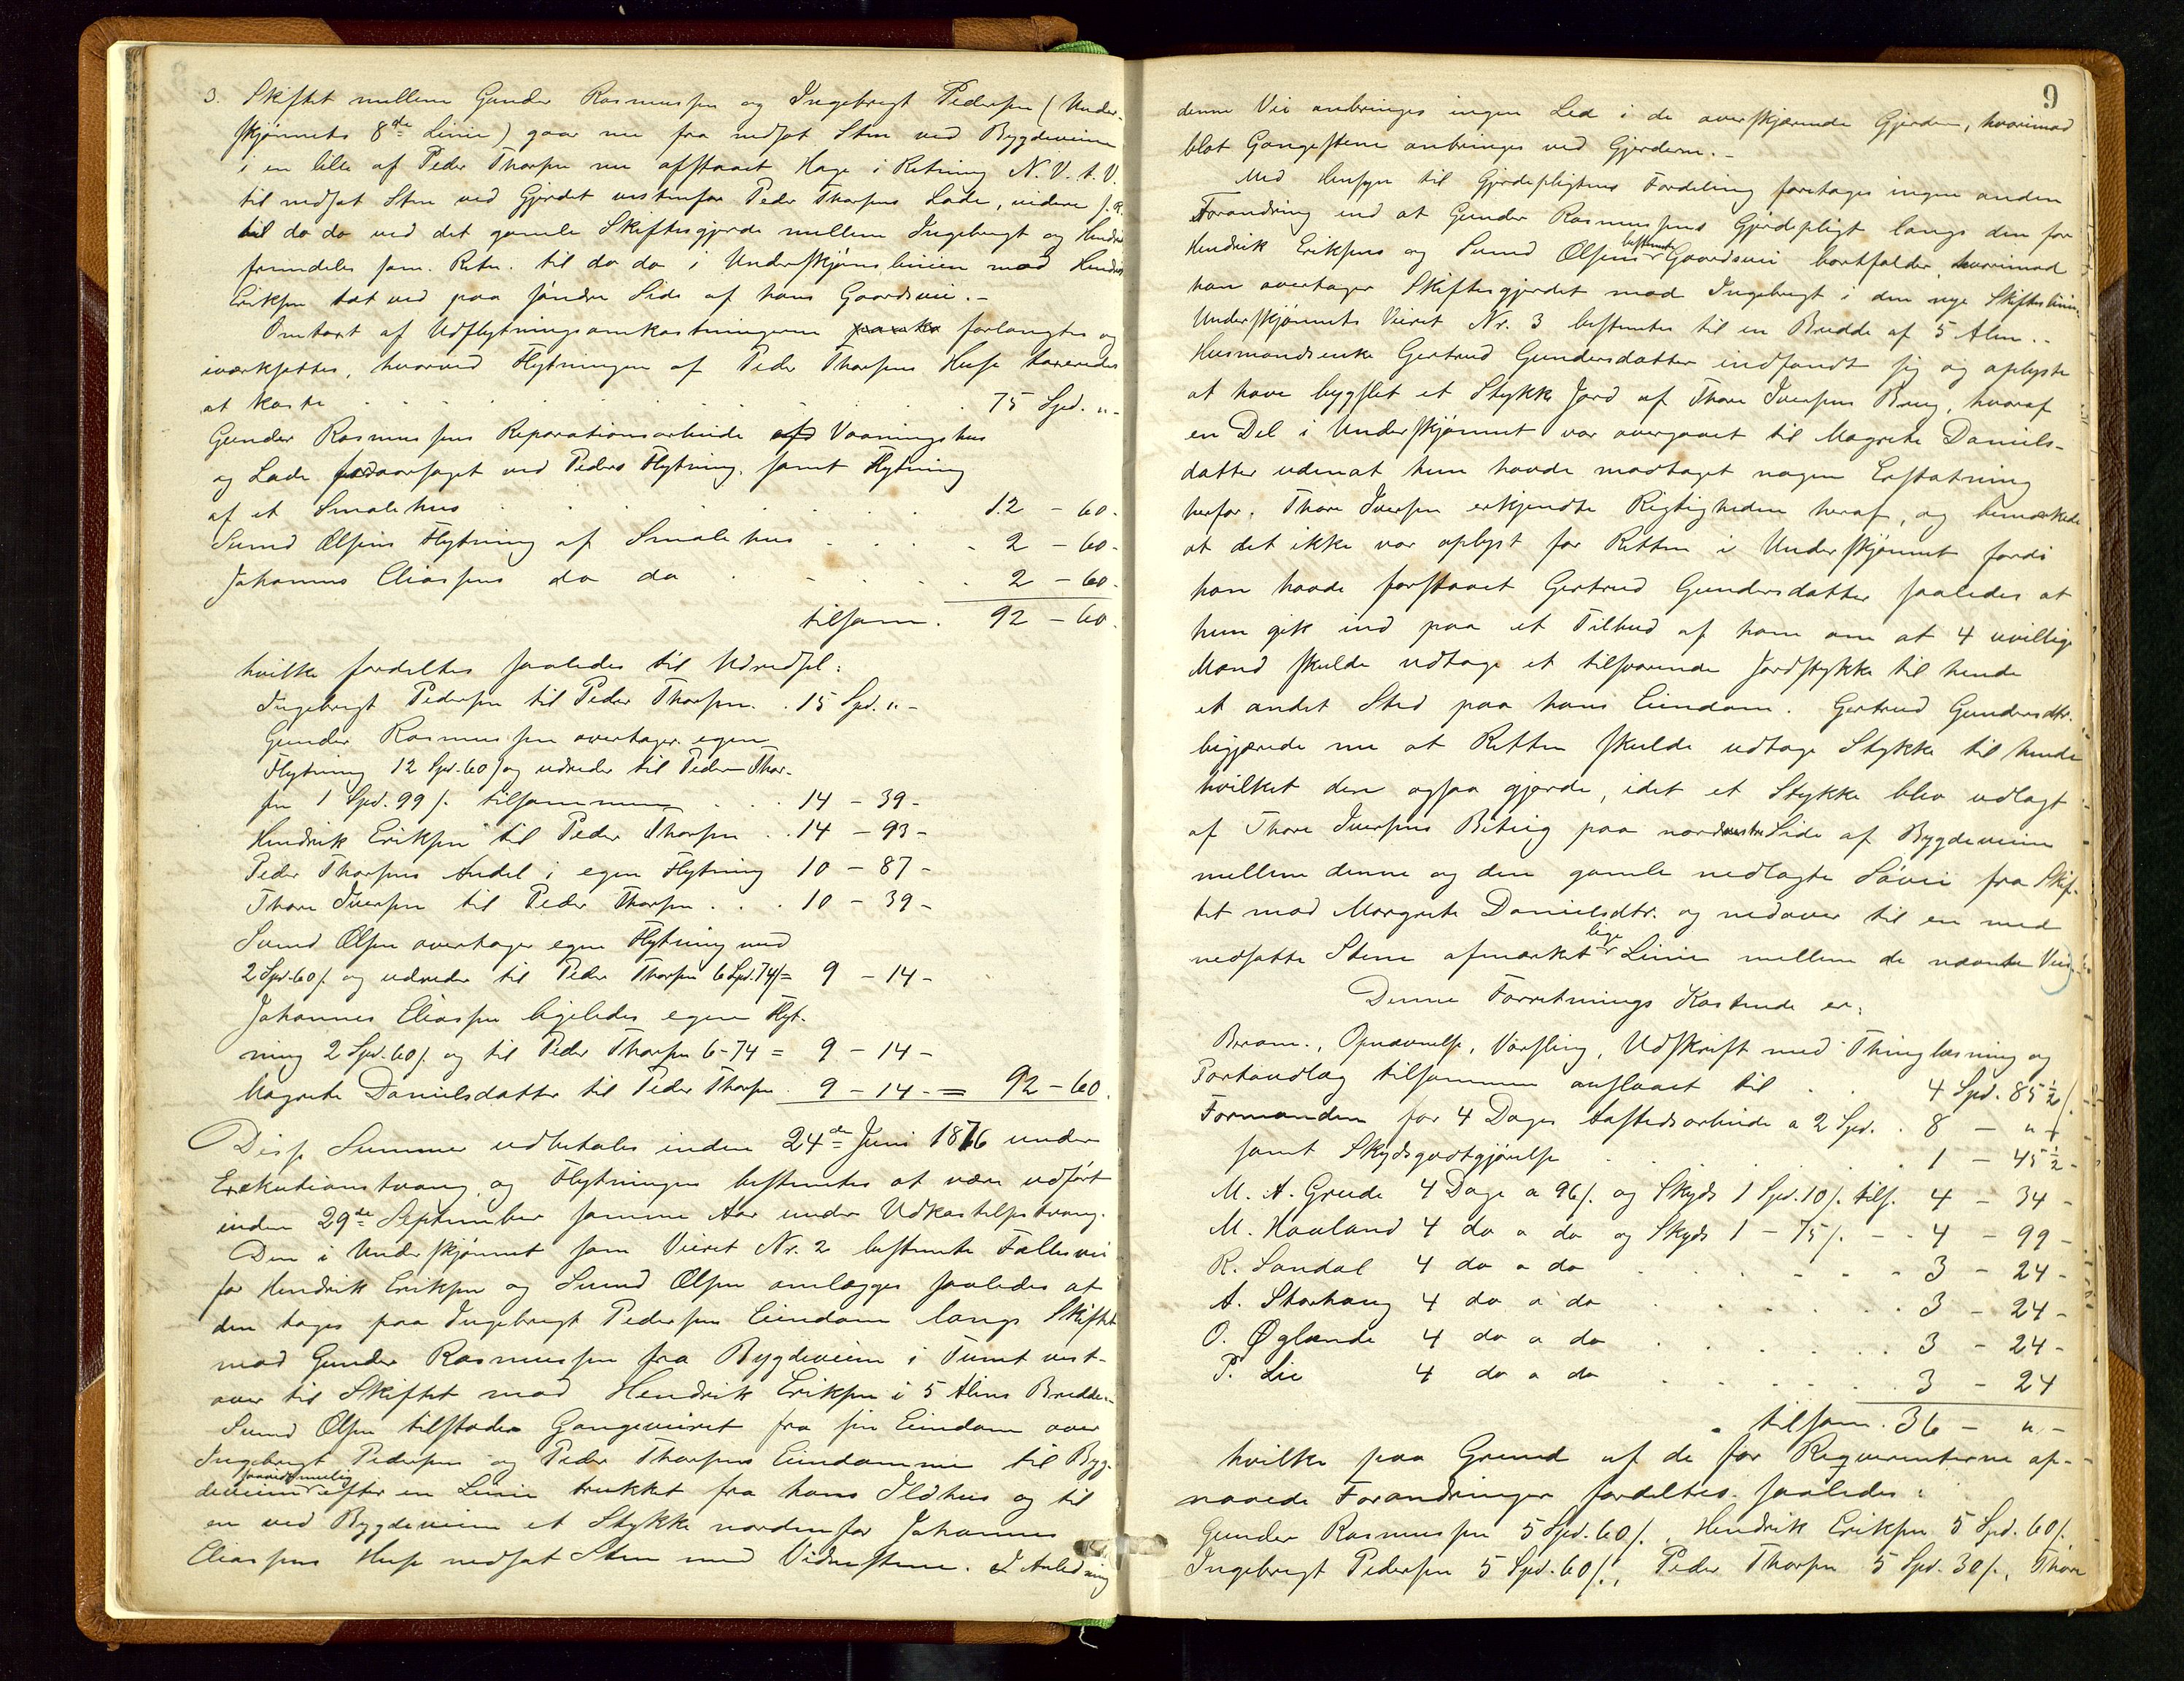 3. Skiftet mellem Gunder Rasmussen og Ingebregt Pedersen (Under-
skjønnets 8de Linie) gaar nu fra nedsat Sten ved Bygdeveien
i en lille af Peder Thorsen nu afstaaet Hage i Retning N. V. t. V.
til nedsat Sten ved Gjerdet vestenfor Peder Thorsens Lade, videre s. R.
til do do ved det gamle Skiftesgjerde mellem Ingebregt og Hendrik
fremdeles sam. Retn. til do do i Underskjønslinien mod Hendrik
Eriksen tæt ved paa søndre Side af hans Gaardsvei. -
Omtaxt af Udflytningsomkostningerne forlangtes og
iværksattes, hvorved Flytningen af Peder Thorsens Huse taxeredes
at koste . . . 75 Spd. " -
Gunder Rasmussens Reparationsarbeide af Vaaningshus
og Lade foraarsaget ved Peders Flytning, samt Flytning
af et Smalehus . . . 12 - 60 -
Svend Olsens Flytning af Smalehus . . . 2 - 60 -
Johannes Eliassens do do . . . 2 - 60 -
tilsam. 92 - 60.
hvilke fordeltes saaledes til Udredsel:
Ingebregt Pedersen til Peder Thorsen . . 15 Spd. " -
Gunder Rasmussen overtager egen
Flytning 12 Spd. 60 s og udreder til Peder Thor-
sen 1 Spd. 99 s. tilsammen . . . 14 - 39 -
Hendrik Eriksen til Peder Thorsen . . 14 - 93 -
Peder Thorsens Andel i egen Flytning 10 - 87 -
Thore Iversen til Peder Thorsen . . . 10 - 39 -
Svend Olsen overtager egen Flytning med
2 Spd. 60 s. og udreder til Peder Thorsen 6 Spd. 74 s = 9 - 14 -
Johannes Eliassen ligeledes egen Flyt-
ning 2 Spd. 60 s. og til Peder Thorsen 6 - 74 = 9 - 14 -
Magrete Danielsdatter til Peder Thorsen . 9 - 14 - = 92 - 60.
Disse Summer udbetales inden 24de Juni 1876 under
Exekutionstvang, og Flytningen bestemtes at være udført
inden 29de September samme Aar under Udkastelsestvang.
Den i Underskjønnet som Veiret Nr. 2 bestemte Fællesvei
for Hendrik Eriksen og Svend Olsen omlægges saaledes at
den tages paa Ingebregt Pedersens Eiendom langs Skiftet
mod Gunder Rasmussen fra Bygdeveien i Tunet vest-
over til Skiftet mod Hendrik Eriksen i 5 Alens Bredde. -
Svend Olsen tilstodes Gangeveiret fra sin Eiendom over
Ingebregt Pedersens og Peder Thorsens Eiendomme til Byg-
deveien saavidt muelig efter en Linie trukket fra hans Ildhus og til
en ved Bygdeveien et Stykke nordenfor Johannes
Eliassens Huse nedsat Sten med Vidnestene. I Anledning
9
denne Vei anbringes ingen Led i de overskjærende Gjerder, hvorimod
blot Gangestene anbringes ved Gjerderne. -
Med Hensyn til Gjerdepligtens Fordeling foretages ingen anden
Forandring end at Gunder Rasmussens Gjerdepligt langs den for
Hendrik Eriksens og Svend Olsens bestemte Gaardsvei bortfalder, hvorimod
han overtager Skiftesgjerdet mod Ingebregt i den nye Skifteslinie.
Underskjønnets Veiret Nr. 3 bestemtes til en Bredde af 5 Alen. -
Husmandsenke Gertrud Gundersdatter indfandt sig og oplyste
at have bygslet et Stykke Jord af Thore Iversens Brug, hvoraf
en Del i Underskjønnet var overgaaet til Magrete Daniels-
datter udenat hun havde modtaget nogen Erstatning
herfor. Thore Iversen erkjendte Rigtigheden heraf, og bemærkede
at det ikke var oplyst for Retten i Underskjønnet fordi
han havde forstaaet Gertrud Gundersdatter saaledes at
hun gik ind paa et Tilbud af ham om at 4 uvillige
Mænd skulde udtage et tilsvarende Jordstykke til hende
et andet Sted paa hans Eiendom. Gertrud Gundersdtr.
begjærede nu at Retten skulde udtage Stykke til hende
hvilket den ogsaa gjorde, idet et Stykke blev udlagt
af Thore Iversens Beteig paa nordvestre Side af Bygdeveien
mellem denne og den gamle nedlagte Søvei fra Skif-
tet mod Margrete Danielsdtr. og nedover til en med
nedsatte Stene afmærket lige Linie mellem de nævnte Veie.
Denne Forretnings Kostende er:
Beram., Opnævnelse, Varsling, Udskrift med Thinglæsning og
Portoudlæg tilsammen anslaaet til . . . 4 Spd. 85 1/2 s.
Formanden for 4 Dages Aastedsarbeide a 2 Spd. . 8 - " -
samt Skydsgodtgjørelse . . . 1 - 45 1/2 -
M. A. Grude 4 Dage a 96 s. og Skyds 1 Spd. 10 s. tils. 4 - 34 -
M. Haaland 4 do a do og Skyds 1 - 75 s. - . 4 - 99 -
R. Sandal 4 do a do . . . 3 - 24 -
A. Storhaug 4 do a do . . . 3 - 24 -
O. Øglænde 4 do a do . . . 3 - 24 -
P. Lie 4 do a do . . . 3 - 24
tilsam. 36 - " -
hvilke paa Grund af de for Reqvirenterne op-
naaede Forandringer fordeltes saaledes:
Gunder Rasmussen 5 Spd. 60 s., Hendrik Eriksen 5 Spd. 60 s.
Ingebregt Pedersen 5 Spd. 60 s., Peder Thorsen 5 Spd. 30 s., Thore